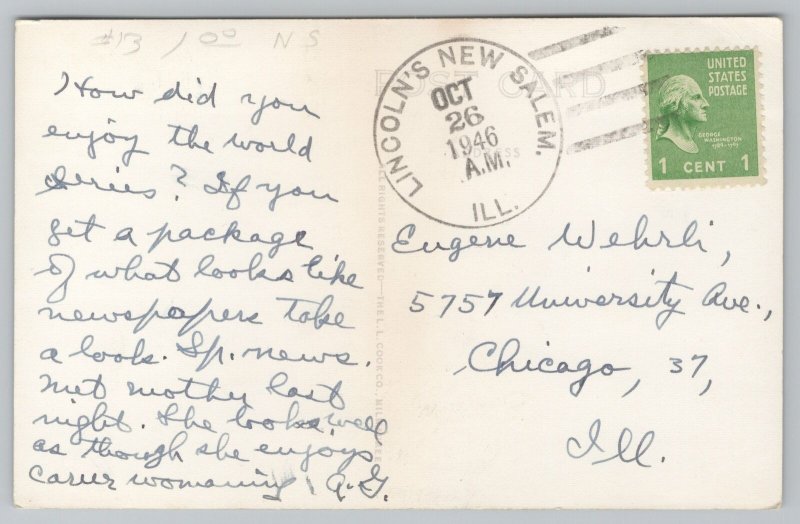 #13 1 00 N S
How did you
enjoy the world
series? If you
get a package
of what looks like
newspapers take
a look. Sp. news.
met mothy last
night. She looks well
as though she enjoys
career womaning. A.G.
POST CARD
ALL RIGHTS RESERVED—THE L.L. COOK CO., MILWAUKEE
LINCOLN'S NEW SALEM.
OCT
26
1946
A.M.
ILL.
UNITED
STATES
POSTAGE
GEORGE
WASHINGTON
1789-1797
1 CENT 1
Eugene Wehrli,
5757 University Ave.,
Chicago, 37,
Ill.